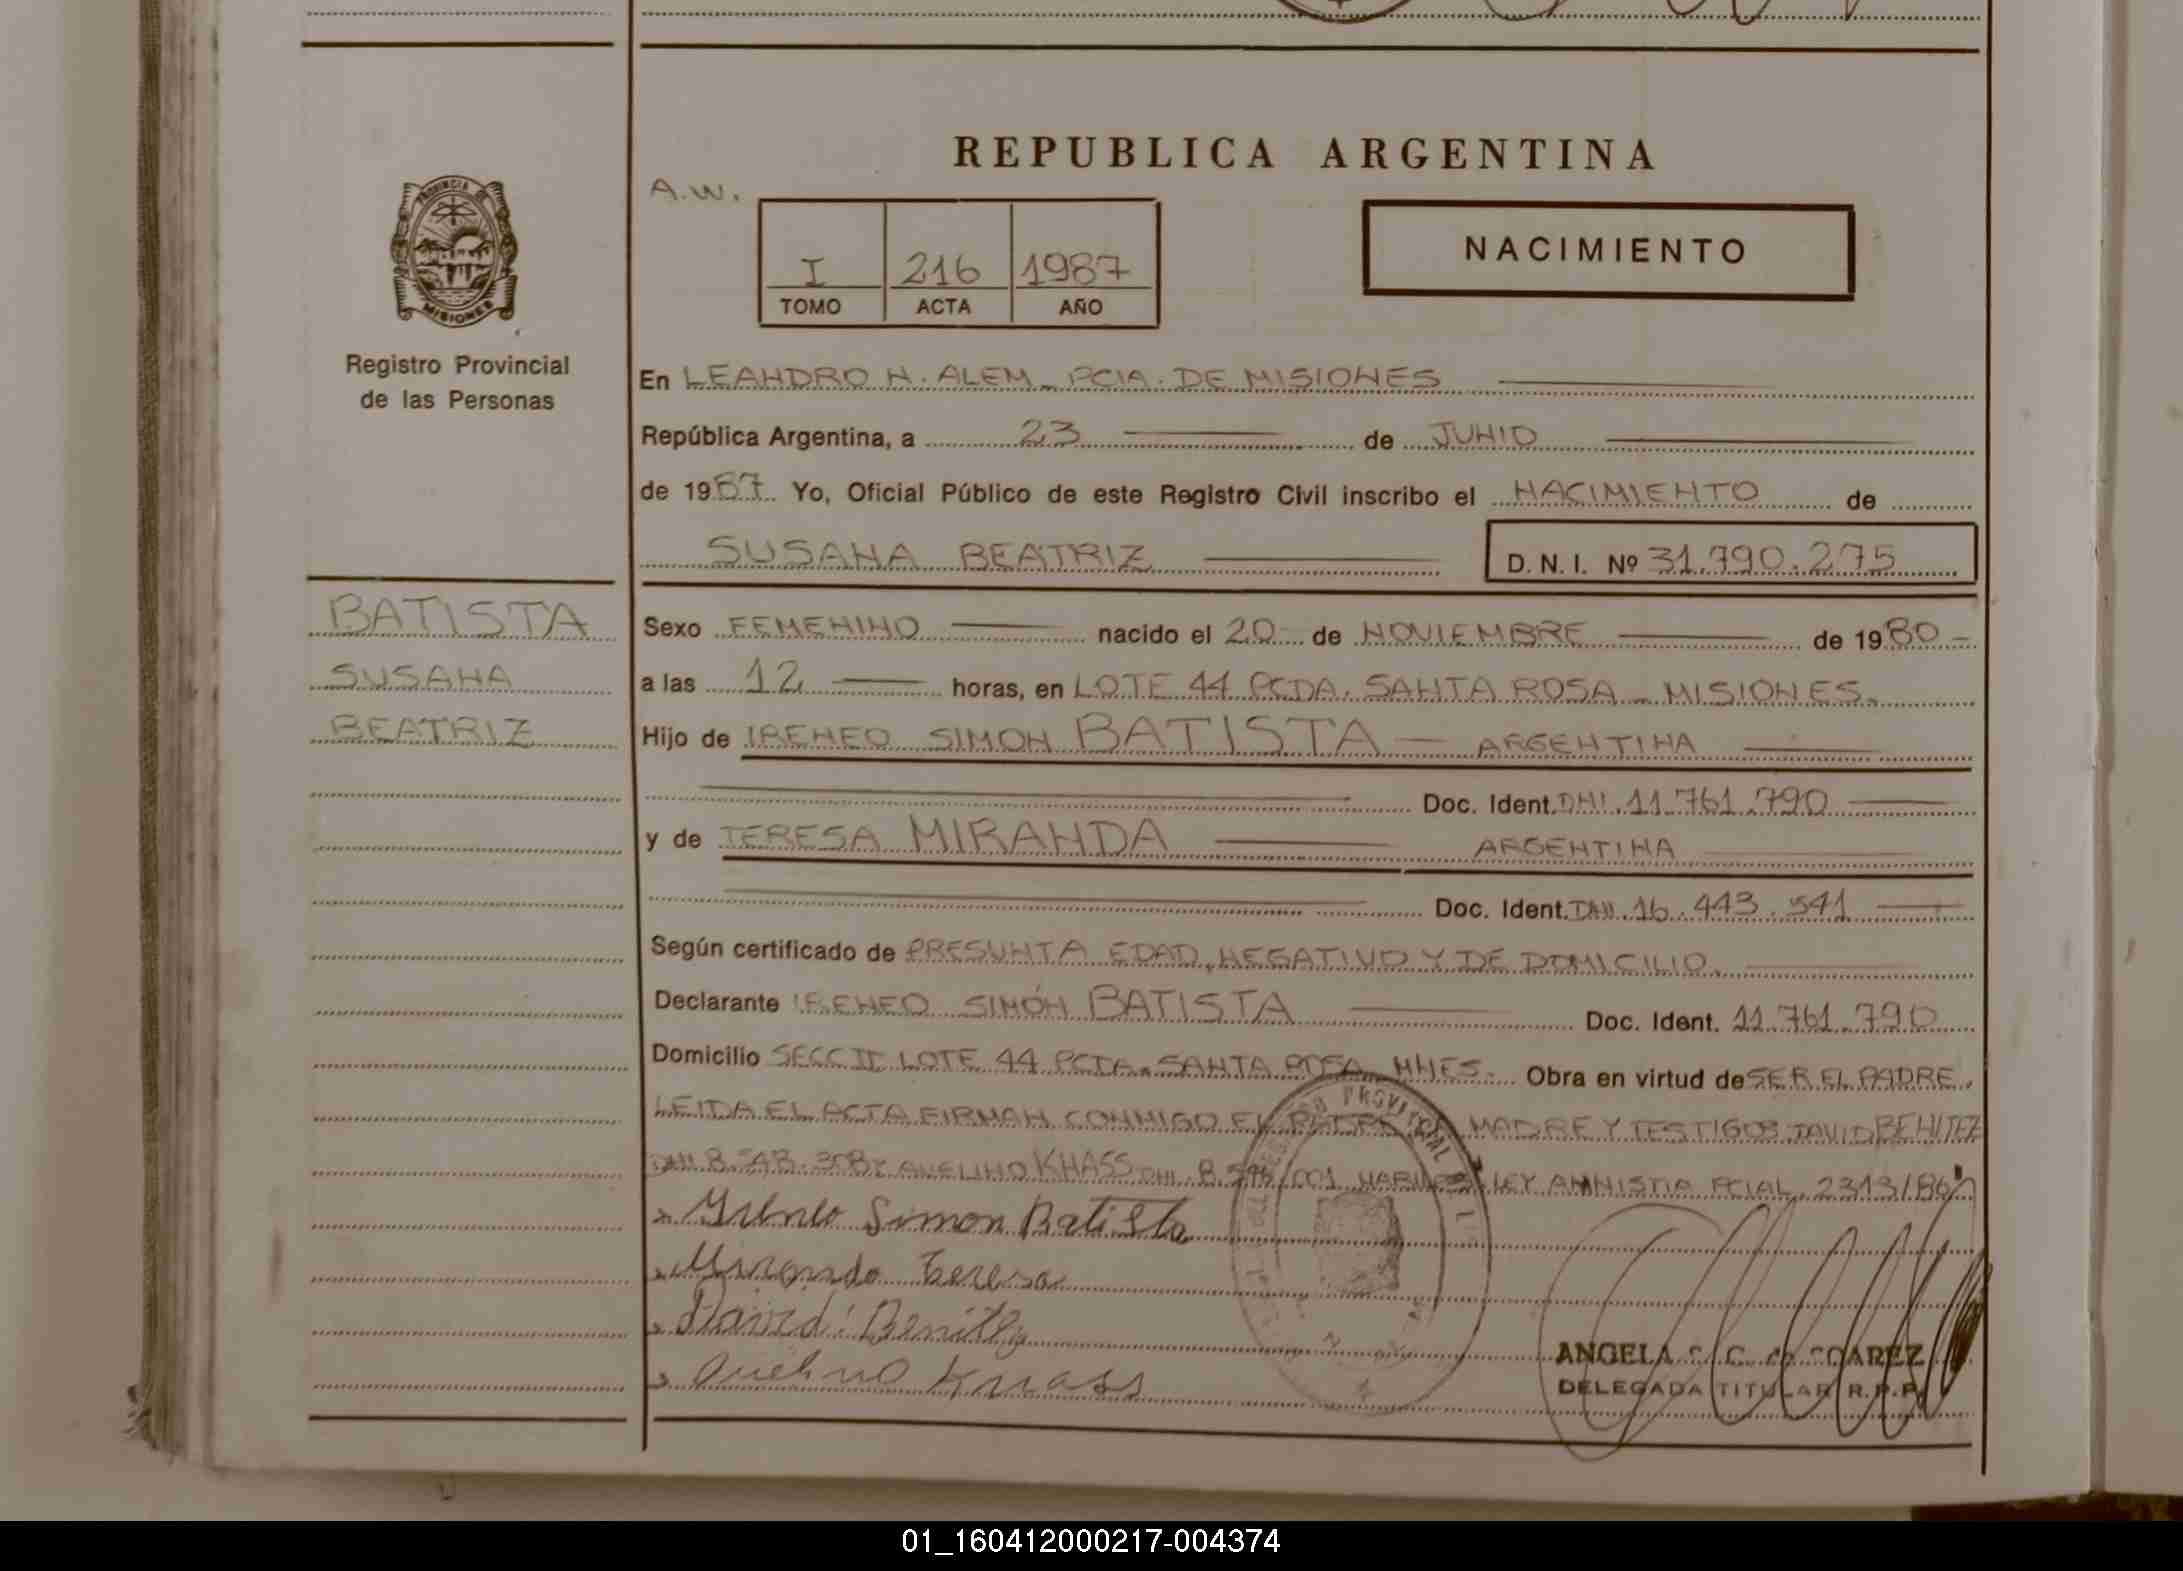 REPUBLICA ARGENTINA
A.W.
I 216 1987
TOMO ACTA AÑO
NACIMIENTO
PROVINCIA DE
MISIONES
Registro Provincial
de las Personas
En LEANDRO N. ALEM - PCIA. DE MISIONES
República Argentina, a 23 de JUNIO
de 1987 Yo, Oficial Público de este Registro Civil inscribo el NACIMIENTO de
SUSANA BEATRIZ D. N. I. Nº 31.790.275
BATISTA
SUSANA
BEATRIZ
Sexo FEMENINO nacido el 20 de NOVIEMBRE de 1980 -
a las 12 horas, en LOTE 44 PCDA. SANTA ROSA - MISIONES.
Hijo de IRENEO SIMON BATISTA - ARGENTINA
Doc. Ident. DNI. 11.761.790
y de TERESA MIRANDA ARGENTINA
Doc. Ident. DNI. 16.443.541
Según certificado de PRESUNTA EDAD, NEGATIVO Y DE DOMICILIO.
Declarante IRENEO SIMÓN BATISTA Doc. Ident. 11.761.790
Domicilio SECC II LOTE 44 PCDA. SANTA ROSA MNES. Obra en virtud de SER EL PADRE.
LEIDA EL ACTA FIRMAN CONMIGO EL PADRE, MADRE Y TESTIGOS DAVID BENITEZ
DNI 8. Y AVELINO KNASS DNI. 8. 001 LEY AMNISTIA PCIAL. 2313/86
Simon Batista
Miranda Teresa
David Benitez
Avelino Knass
PROVINCIAL
ANGELA DE SUAREZ
DELEGADA TITULAR R.P.P.
01_160412000217-004374